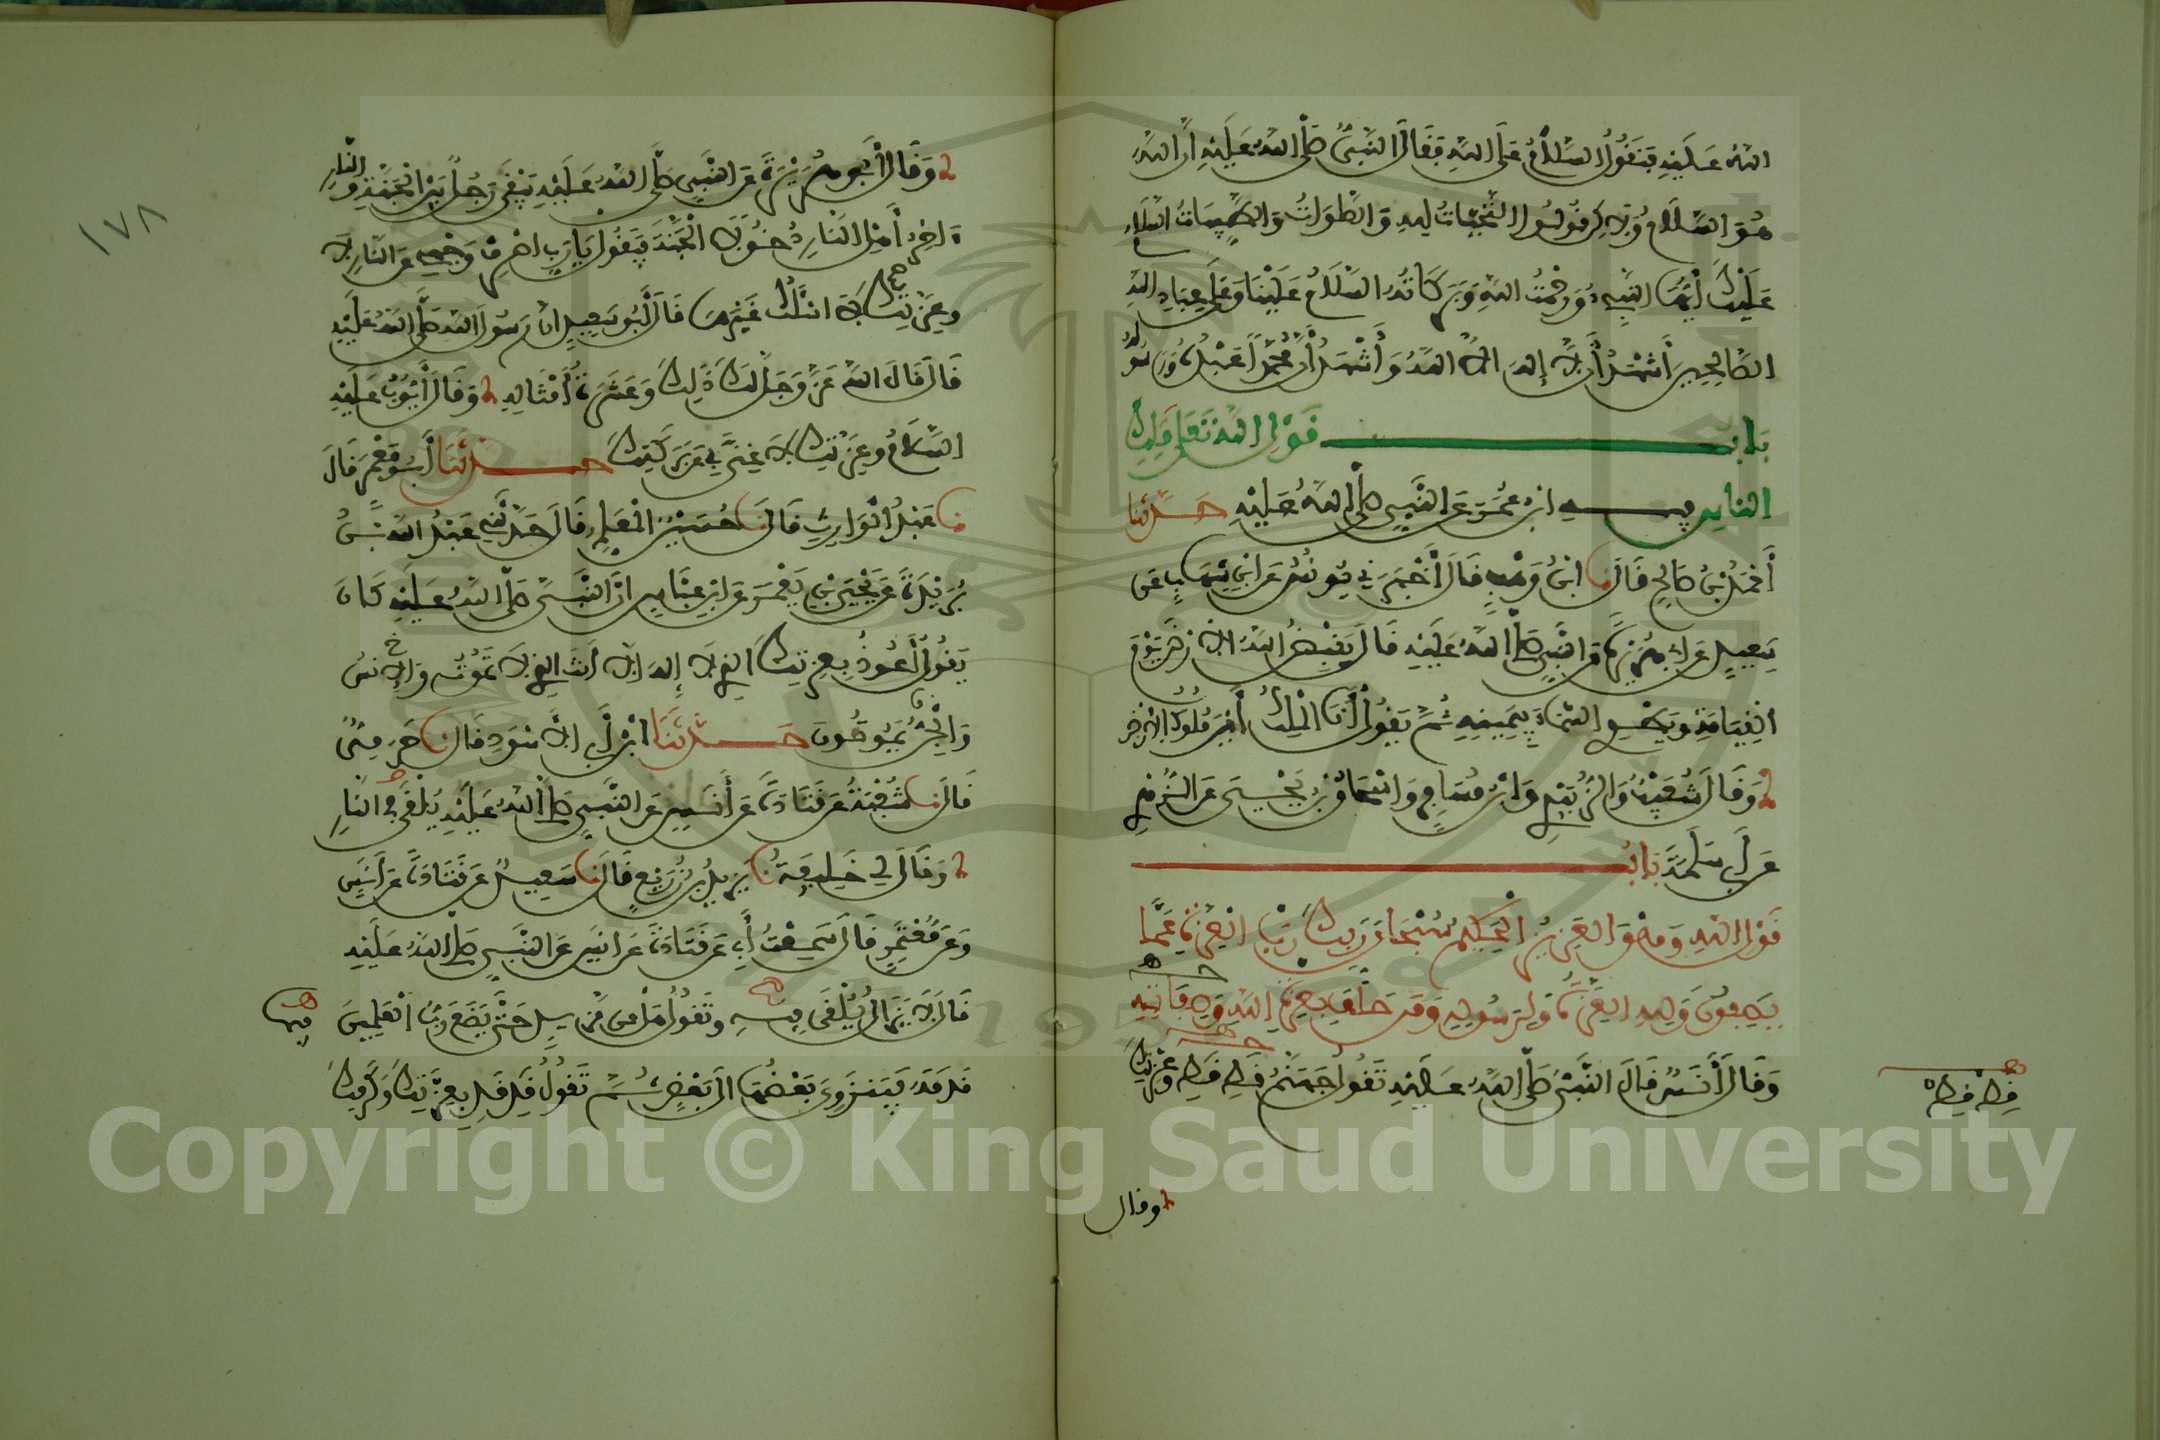 الله عليه فنقول السلام على الله فقال النبي صلى الله عليه إن الله
هو السلام ولكن قولوا التحيات لله والصلوات والطيبات السلام
عليك أيها النبيء ورحمت الله وبركاته السلام علينا وعلى عباد الله
الصالحين أشهد أن لا إله إلا الله وأشهد أن محمدا عبده ورسوله
باب قول الله تعلى ملك
الناس فيه ابن عمر عن النبي صلى الله عليه حدثنا
أحمد بن صالح قال نا ابن وهب قال أخبرني يونس عن ابن شهاب عن
سعيد عن أبي هريرة عن النبي صلى الله عليه قال يقبض الله الارض يوم
القيامة ويطوي السماء بيمينه ثم يقول أنا الملك أين ملوك الارض
وقال شعيب والزبيدي وابن مسافر واسحاق بن يحيى عن الزهري
عن أبي سلمة باب
قول الله وهو العزيز الحكيم سبحان ربك رب العزة عما
يصفون ولله العزة ولرسوله ومن حلف بعزة الله وصفاته
وقال أنس قال النبي صلى الله عليه تقول جهنم قط قط وعزتك
قط قط
وقال
١٧٨
وقال أبو هريرة عن النبي صلى الله عليه يبقى رجل بين الجنة والنار
ءاخر أهل النار دخولا الجنة فيقول يا رب اصرف وجهي عن النار لا
وعزتك لا اسئلك غيرها قال أبو سعيد ان رسول الله صلى الله عليه
قال قال الله عز وجل لك ذلك وعشرة أمثاله وقال أيوب عليه
السلام وعزتك لا غنى بي عن بركتك حدثنا أبو معمر قال
نا عبد الوارث قال نا حسين المعلم قال حدثني عبد الله بن
بريدة عن يحيى بن يعمر عن ابن عباس ان النبي صلى الله عليه كان
يقول أعوذ بعزتك الذي لا إله الا أنت الذي لا تموت والانس
والجن يموتون حدثنا ابن أبي الاسود قال نا حرمي
قال نا شعبة عن قتادة عن أنس عن النبي صلى الله عليه يلقى في النار
وقال لي خليفة نا يزيد بن زريع قال نا سعيد عن قتادة عن أنس
وعن معتمر قال سمعت أبي عن قتادة عن انس عن النبي صلى الله عليه
قال لا يزال يلقى فيه وتقول هل من مزيد حتى يضع رب العلمين
فيها
قدمه فينزوي بعضها الى بعض ثم تقول قد قد بعزتك وكرمك
Copyright © King Saud University